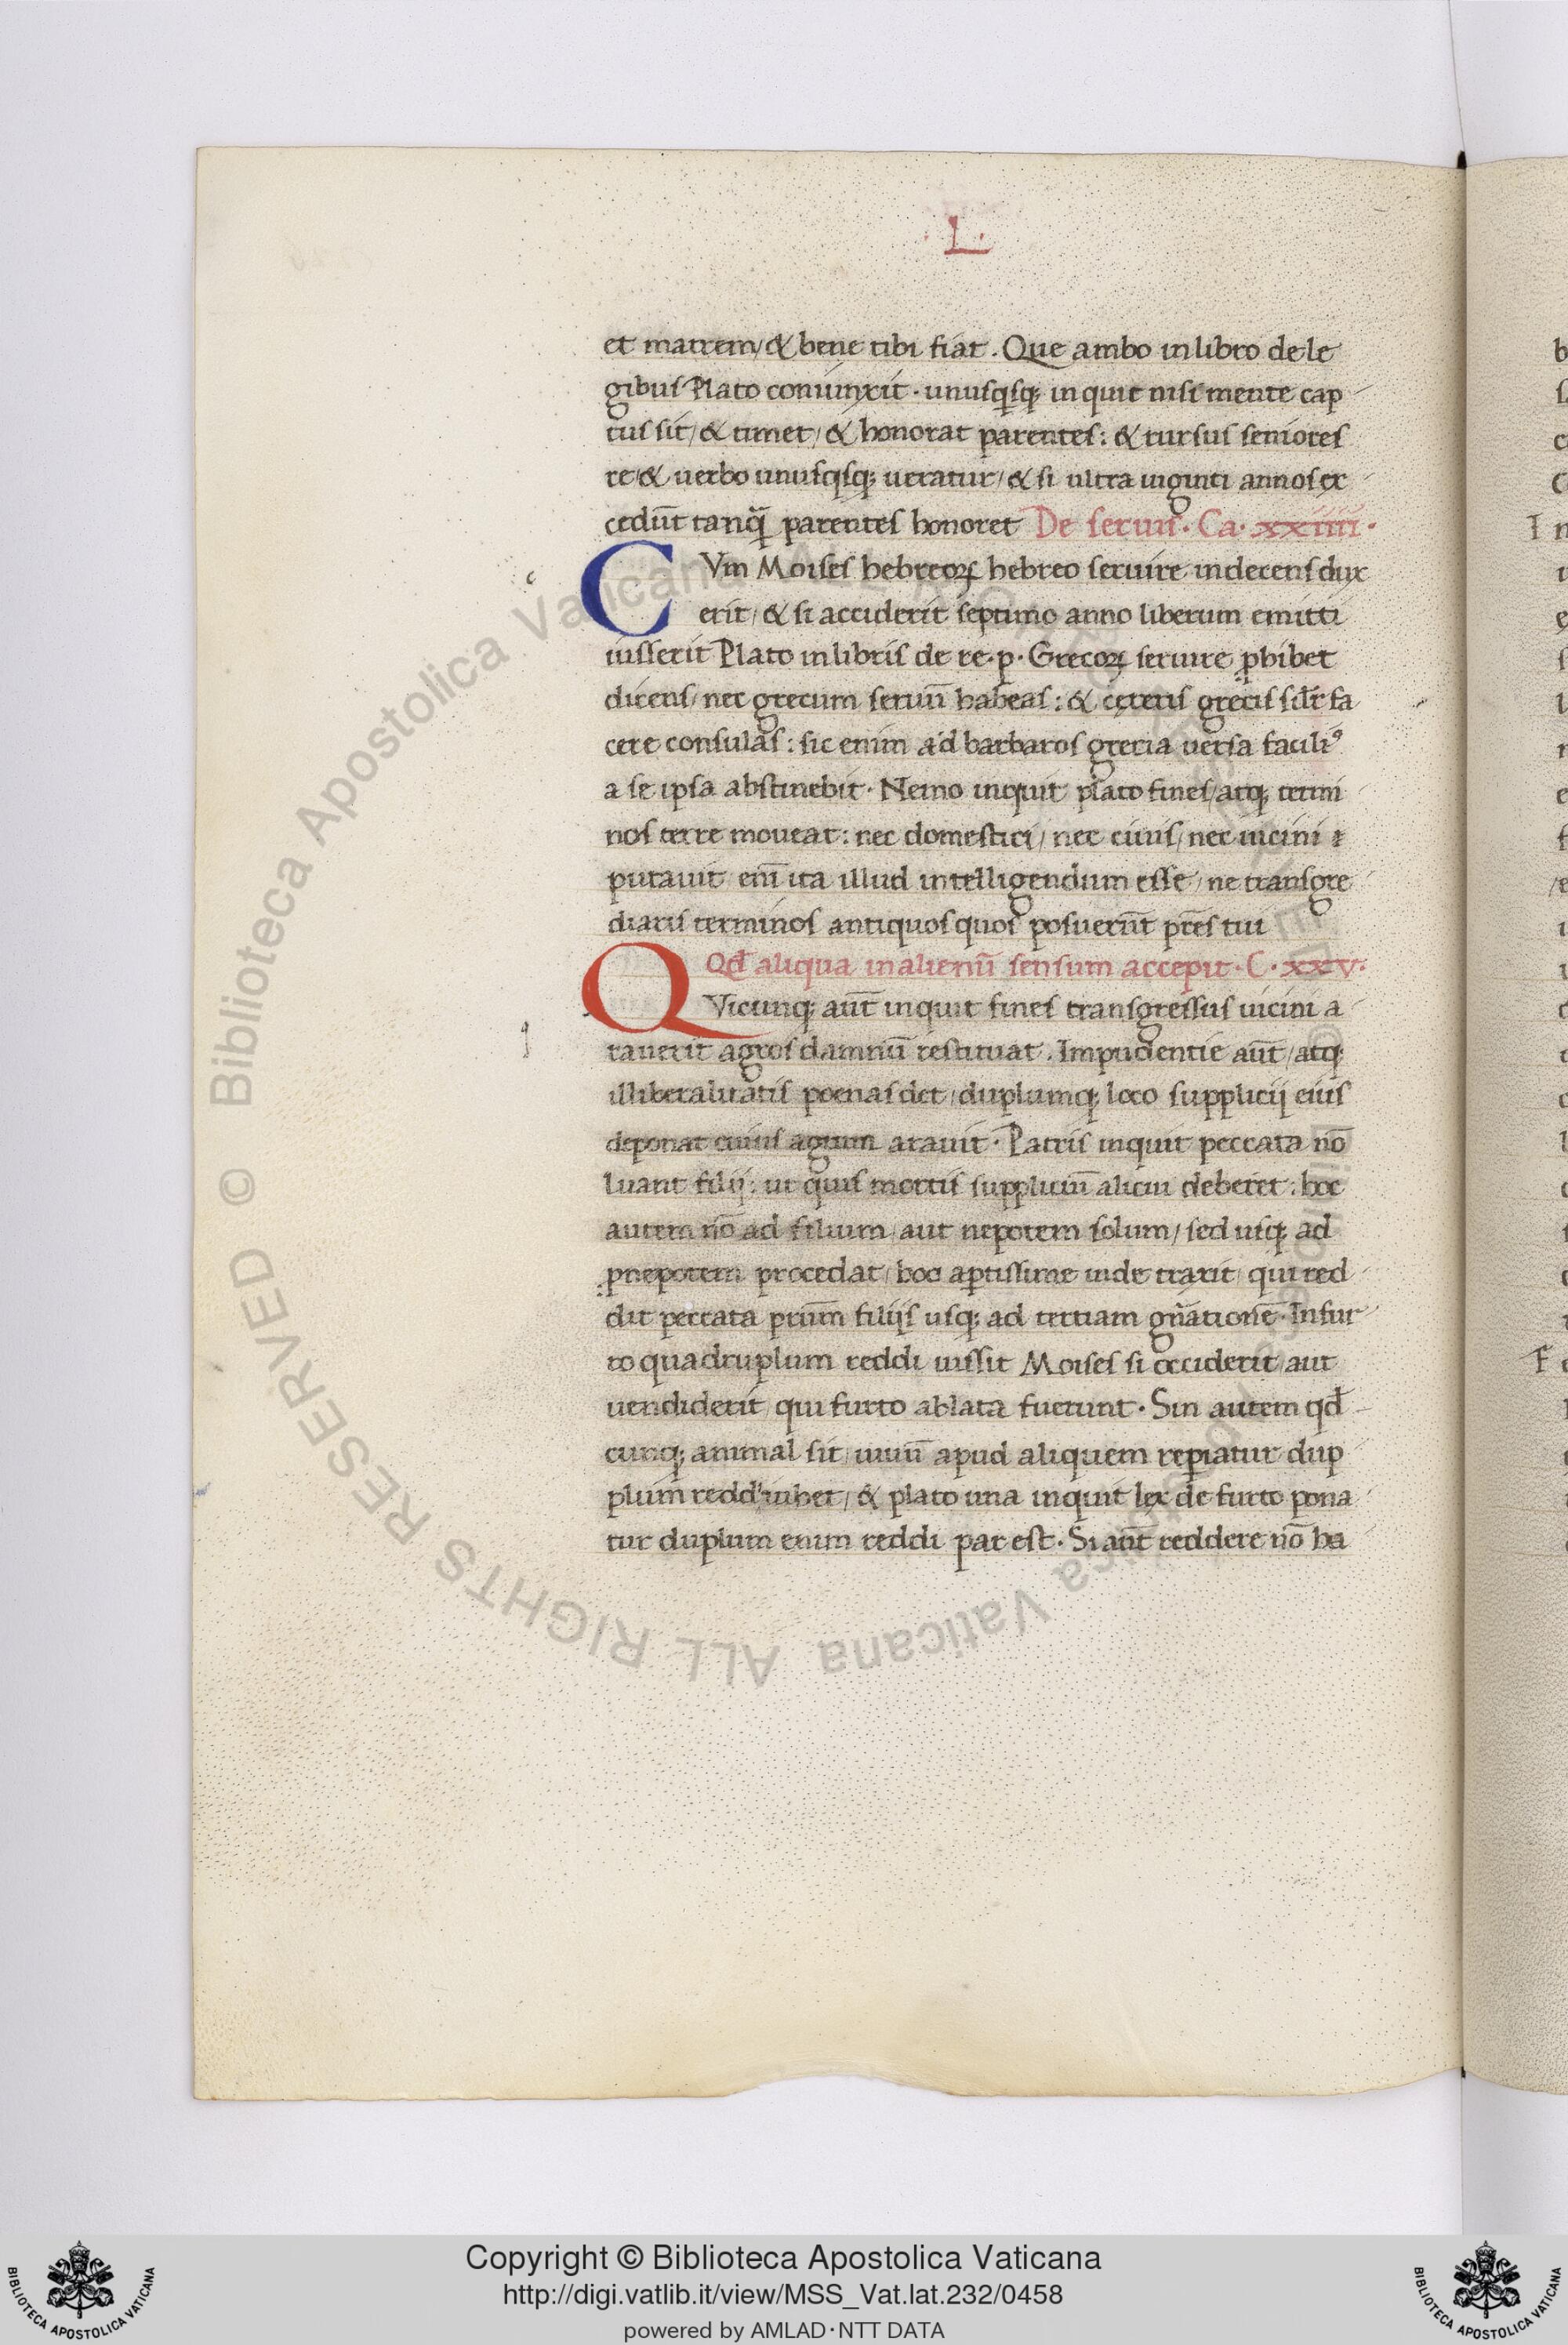 .L.
et matrem/ & bene tibi fiat. Que ambo in libro de le
gibus Plato coniunxit · unusqsq; inquit nisi mente cap
tus sit/ & timet/ & honorat parentes: & rursus seniores
re/ & uerbo unusqsq; ueratur/ & si ultra uiginti annos ex
cedūt tanq̄ parentes honoret De seruis. Ca. xxiiii.
CVm Moises hebreoꝝ hebreo seruire inderens dux
erit/ & si acciderit septimo anno liberum emitti
iusserit Plato in libris de re · p · Grecoꝝ seruire ꝓhibet
dicens/ nec grecum seruū habeas: & ceteris grecis silr̄ fa
cere consulas: sic enim ad barbaros grecia uersa faciliꝰ
a se ipsa abstinebit · Nemo inquit plato fines/ atq; termi
nos terre moueat: nec domestici/ nec ciuis/ nec uicini
putauit em̄ ita illud intelligendum esse/ ne transgre
diaris terminos antiquos quos posuerūt pr̄es tui
Qd̄ aliqua in alienū sensum accepit · C · xxv ·
QVicunq; aūt inquit fines transgressus uicini a
rauerit agros damnū restituat. Impudentie aūt/ atq;
illiberalitatis poenas det/ duplumq; loco supplicij eius
deponat cuius agrum arauit · Patris inquit peccata nō
luant filij: ut quis mortis suppliciū alicui deberet: hoc
autem nō ad filium/ aut nepotem solum/ sed usq; ad
pnepotem procedat/ hoc aptissime inde traxit/ qui red
dit peccata prūm filijs usq; ad tertiam gn̄ationē · In fur
to quadruplum reddi iussit Moises si occiderit/ aut
uendiderit/ qui furto ablata fuerunt · Sin autem qd̄
cunq; animal sit/ uiuū apud aliquem repiatur dup
plum redd' iubet/ & plato una inquit lex de furto pona
tur duplum enim reddi par est · Si aūt reddere nō ha
Copyright © Biblioteca Apostolica Vaticana
http://digi.vatlib.it/view/MSS_Vat.lat.232/0458
powered by AMLAD·NTT DATA
BIBLIOTECA APOSTOLICA VATICANA
BIBLIOTECA APOSTOLICA VATICANA